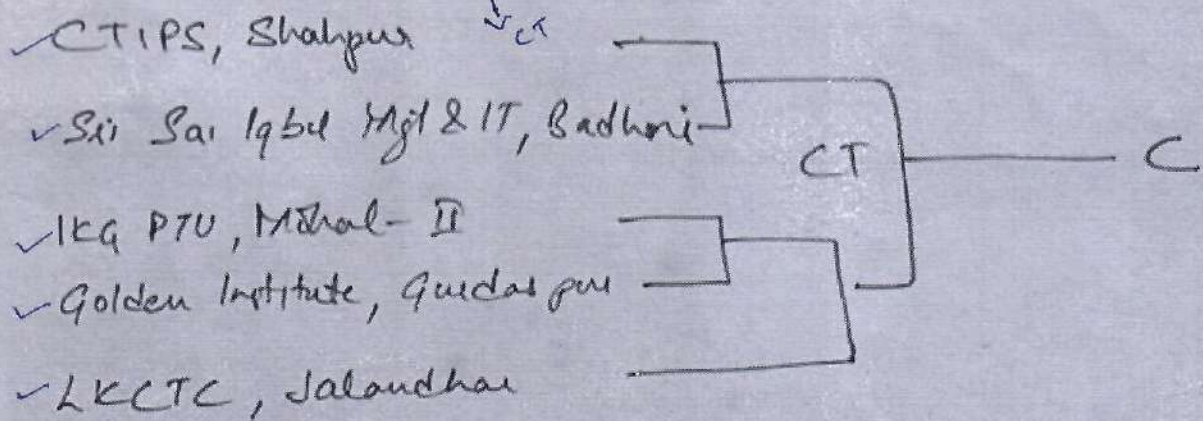 ✓CTIPS, Shahpur ↓CT
✓Sri Sai Iqbal Mgt & IT, Badhani
CT
C
✓IKG PTU, Mohal-II
✓Golden Institute, Gurdaspur
✓LKCTC, Jalandhar